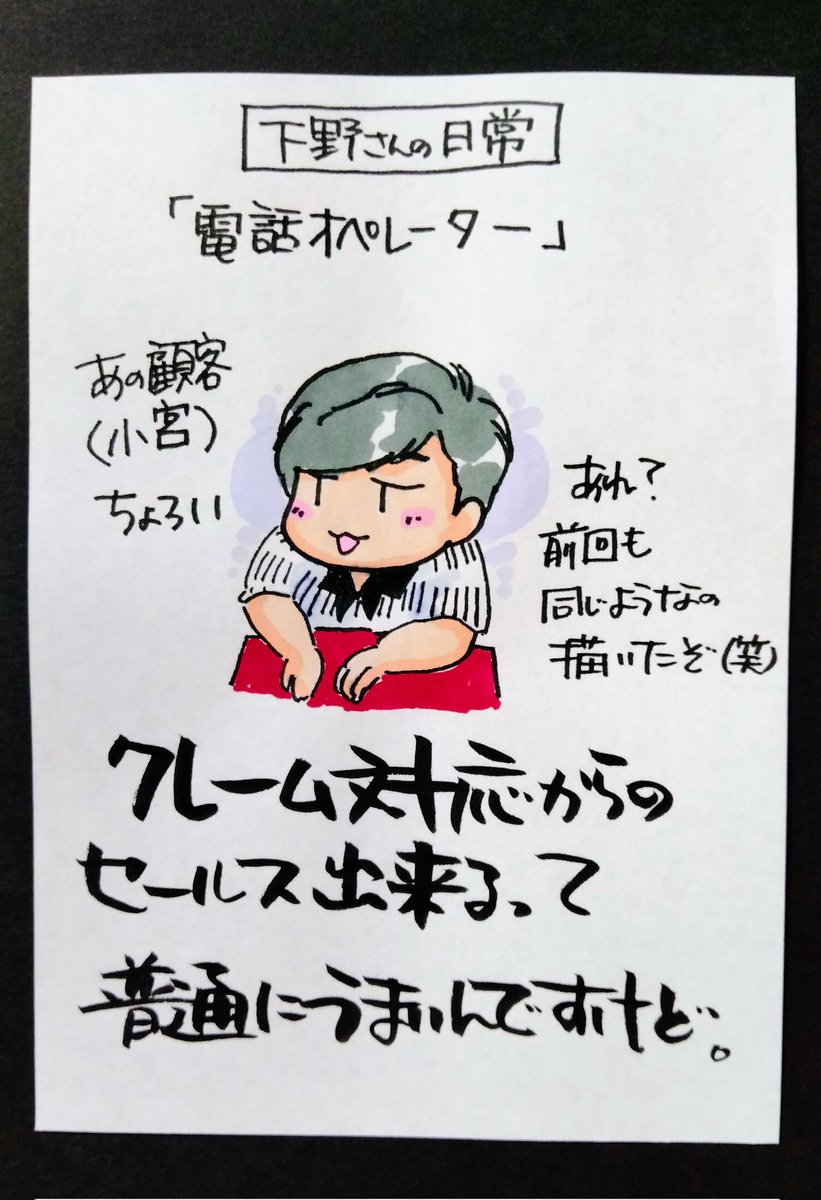 下野さんの日常
「電話オペレーター」
あの顧客
(小宮)
ちょろい
あれ?
前回も
同じようなの
描いたぞ(笑)
クレーム対応からの
セールス出来るって
普通にうまいんですけど。